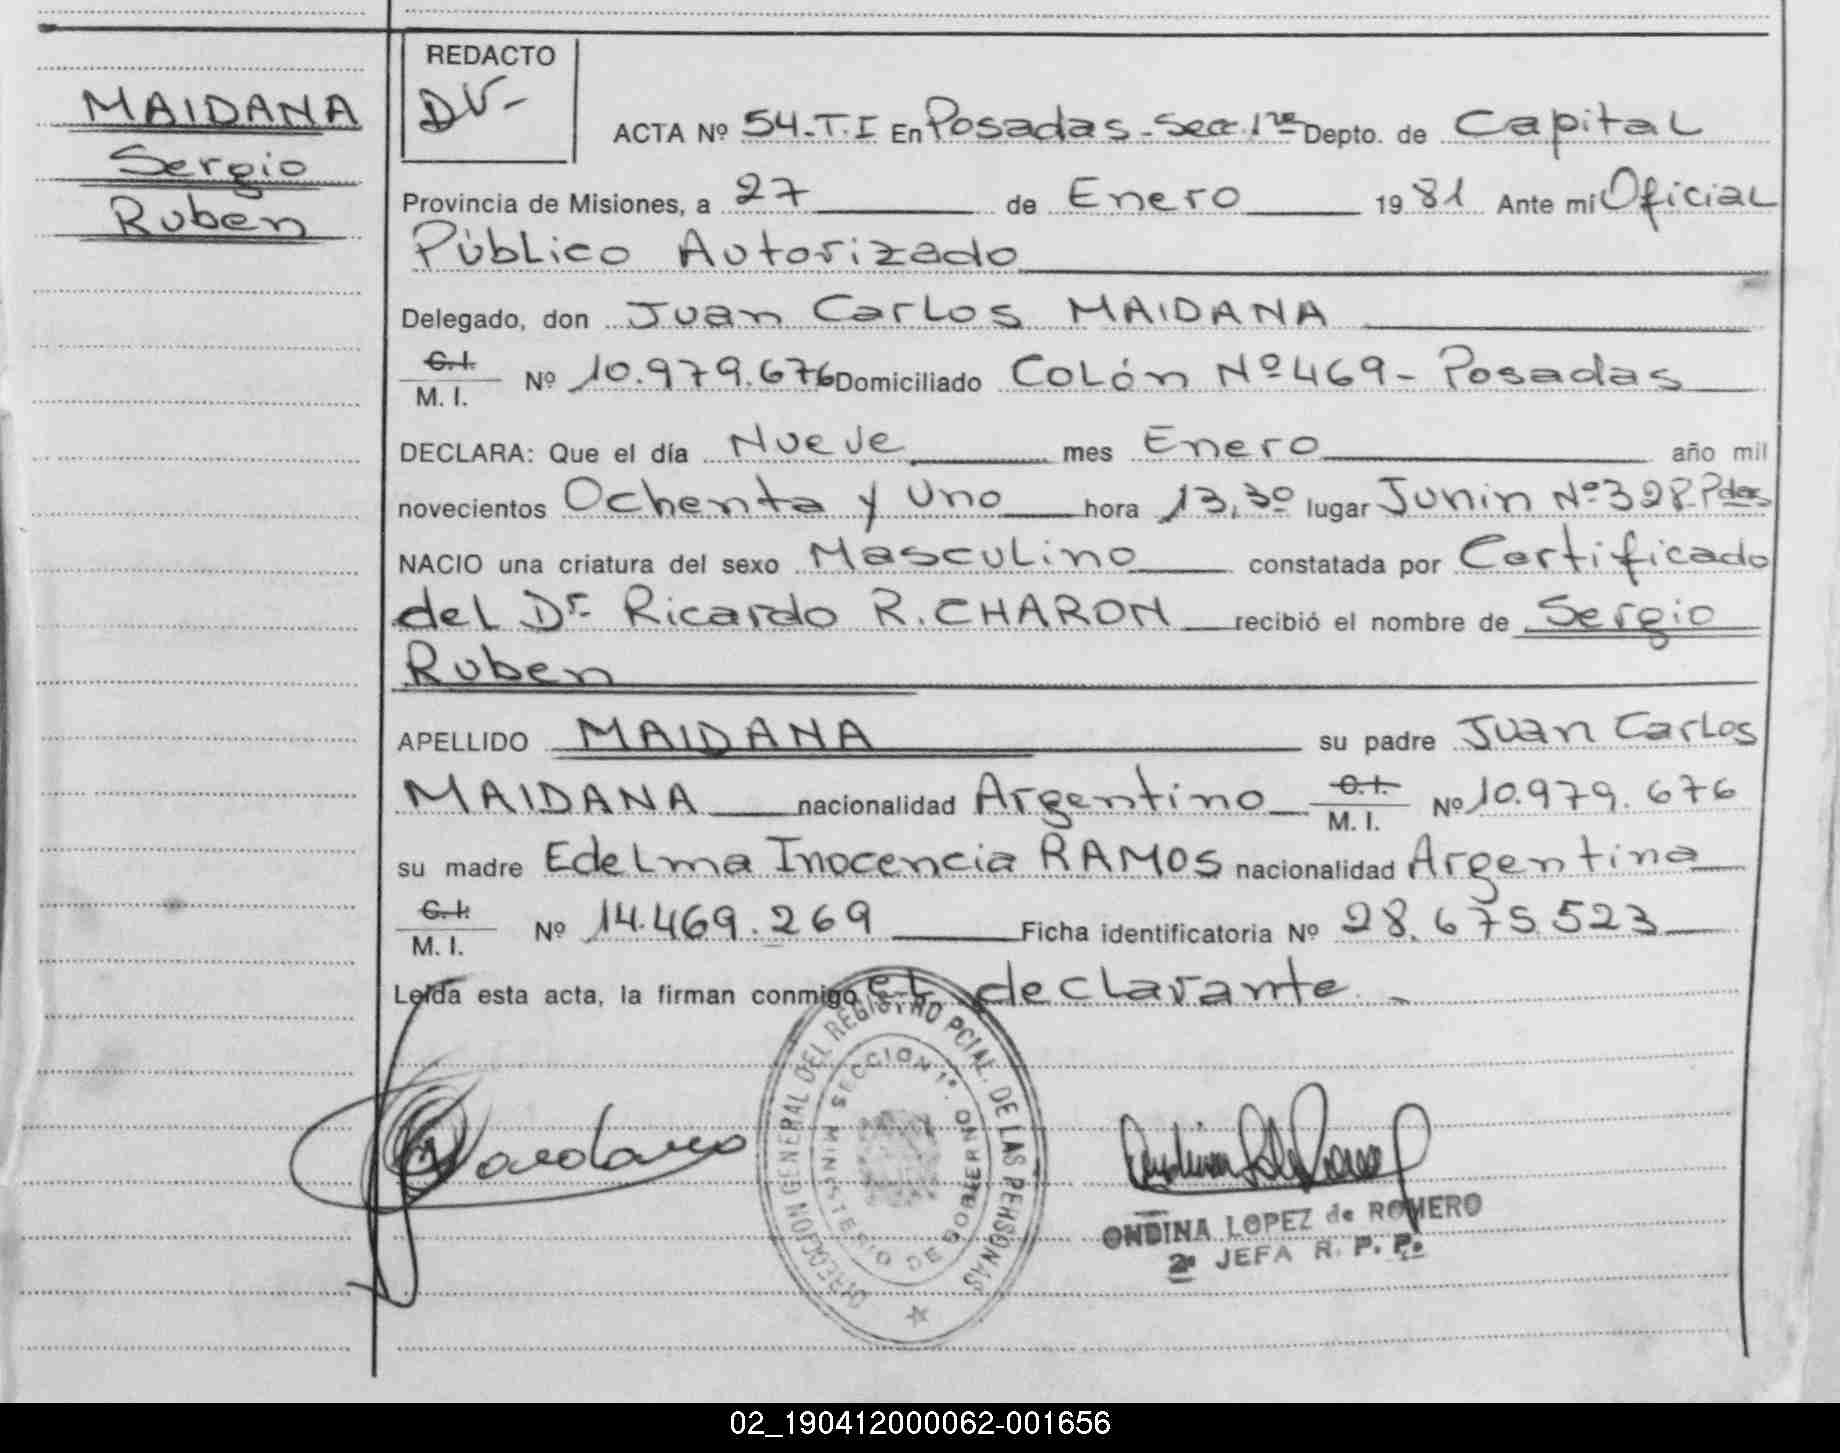 MAIDANA
Sergio
Ruben
REDACTO
DV-
ACTA Nº 54-T.I En Posadas-Secc. 1ra Depto. de Capital
Provincia de Misiones, a 27 de Enero 1981 Ante mi Oficial
Público Autorizado
Delegado, don Juan Carlos MAIDANA
C.I. M.I. Nº 10.979.676 Domiciliado Colón Nº 469- Posadas
DECLARA: Que el día Nueve mes Enero año mil
novecientos Ochenta y Uno hora 13,30 lugar Junin Nº 328. Pdas
NACIO una criatura del sexo Masculino constatada por Certificado
del Dr. Ricardo R. CHARON recibió el nombre de Sergio
Ruben
APELLIDO MAIDANA su padre Juan Carlos
MAIDANA nacionalidad Argentino C.I. M.I. Nº 10.979.676
su madre Edelma Inocencia RAMOS nacionalidad Argentina
C.I. M.I. Nº 14.469.269 Ficha identificatoria Nº 28.675.523
Leída esta acta, la firman conmigo el declarante.-
DIRECCION GENERAL DEL REGISTRO PCIAL. DE LAS PERSONAS
SECCION 1ª. MINISTERIO DE GOBIERNO
ONDINA LOPEZ de ROMERO
2ª JEFA R. P. P.
02_190412000062-001656